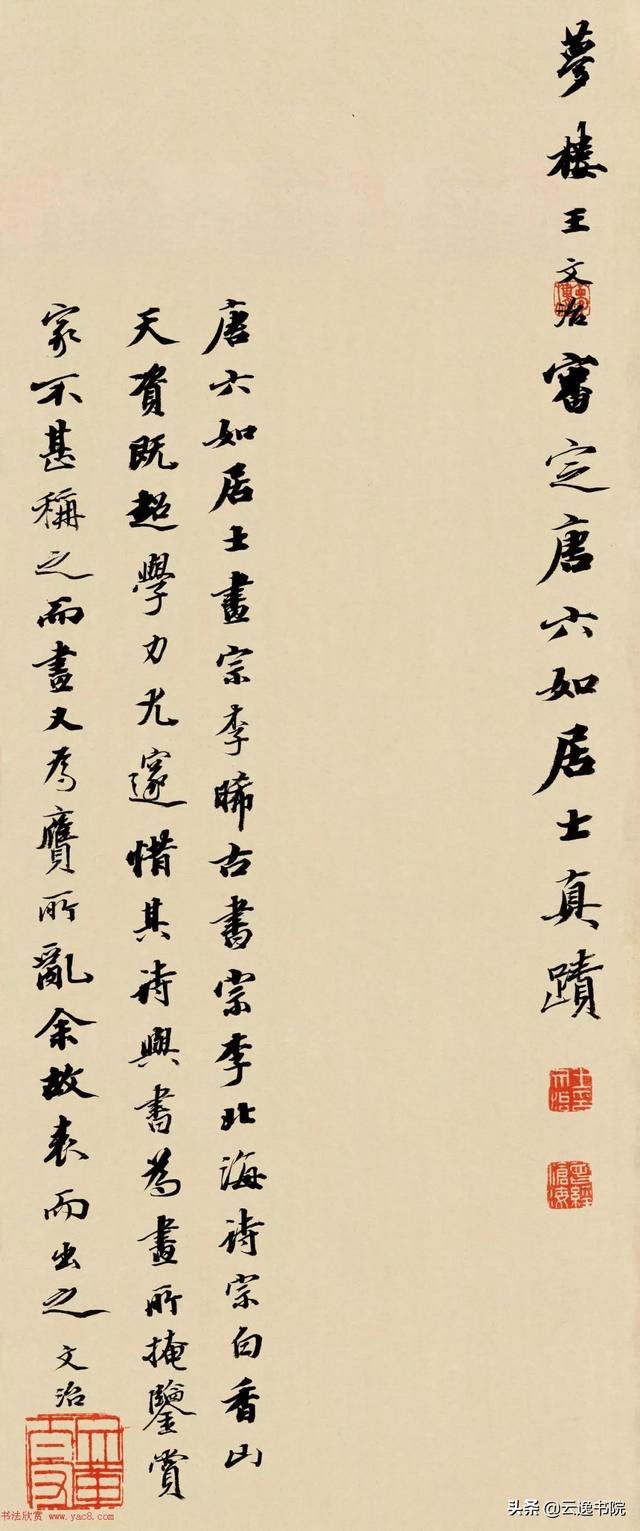 夢樓王文治審定唐六如居士真蹟
曾經滄海
唐六如居士畫宗李晞古書宗李北海詩宗白香山
天資既超學力尤邃惜其詩與書為畫所掩鑒賞
家不甚稱之而畫又為贗所亂余故表而出之
文治
书法欣赏 www.yac8.com
头条 @云逸书院